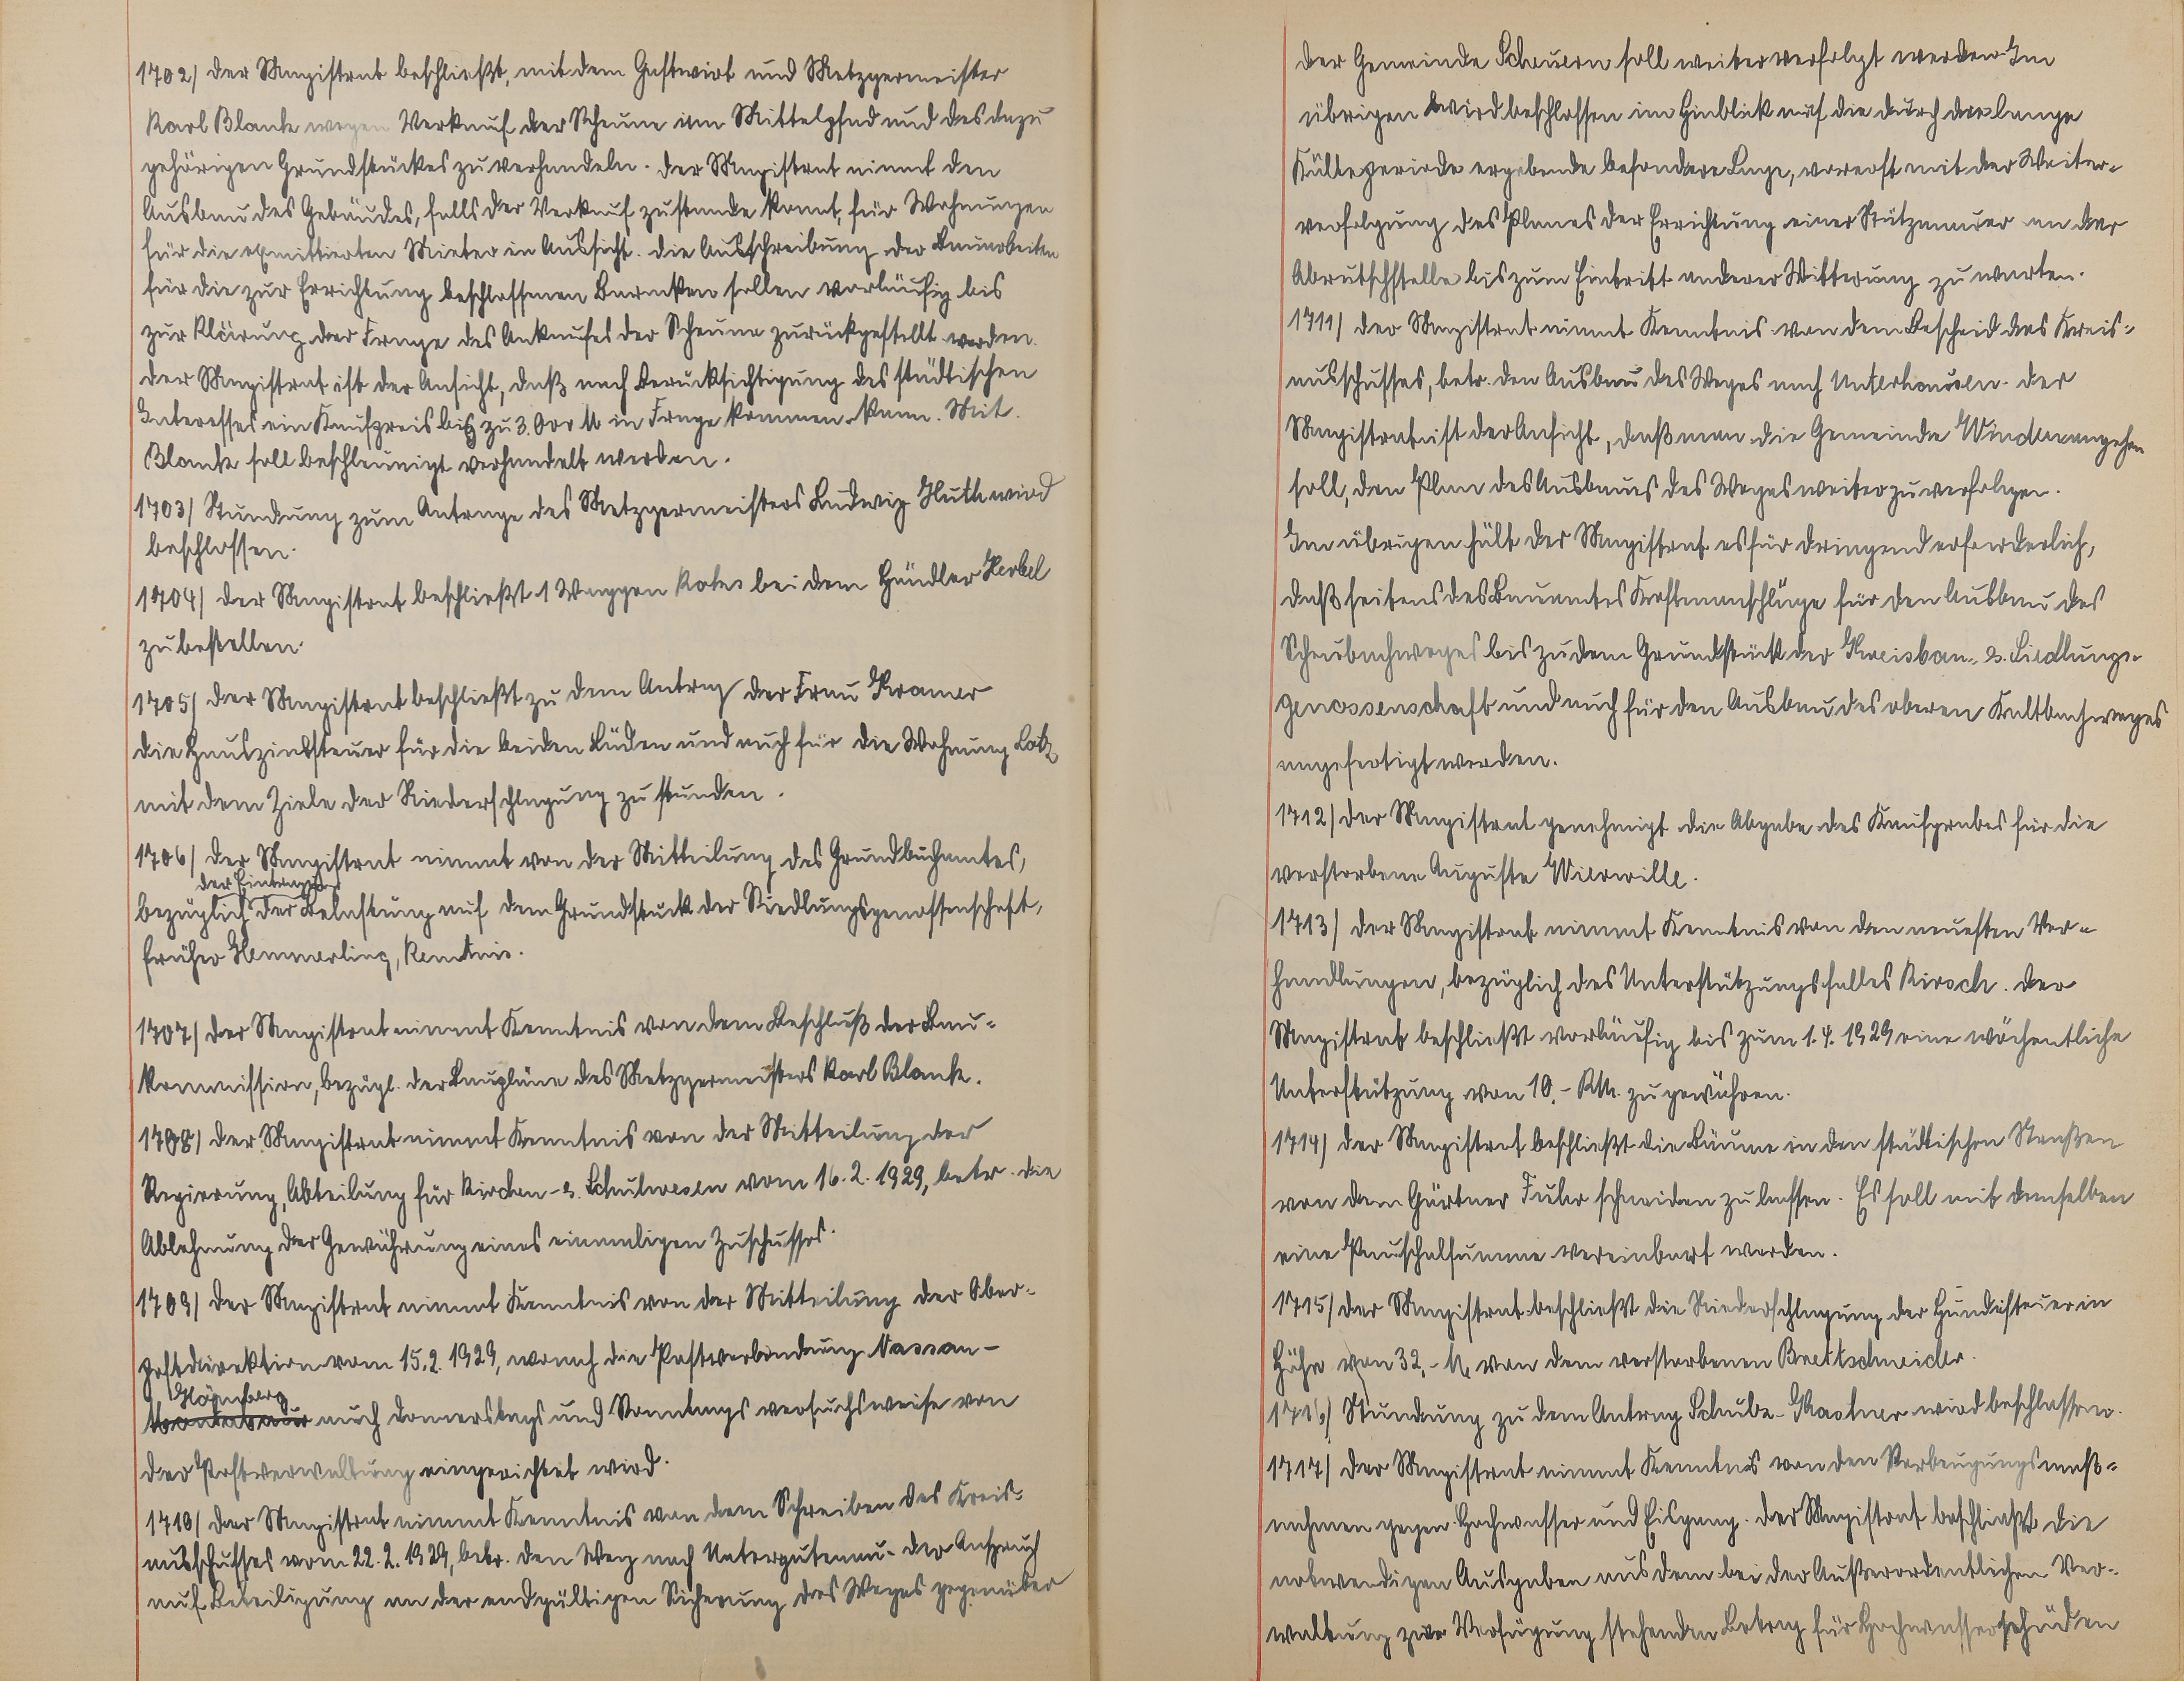 1702) Der Magistrat beschließt, mit dem Gastwirt und Metzgermeister
Karl Blank wegen Verkauf der Scheune im Mittelpfad und des dazu
gehörigen Grundstückes zu verhandeln. Der Magistrat nimmt den
Ausbau des Gebäudes, falls der Verkauf zustande kommt, für Wohnungen
für die exmittierten Mieter in Aussicht. Die Ausschreibung der Bauarbeiten
für die zur Errichtung beschlossenen Baracken sollen vorläufig bis
zur Klärung der Frage des Ankaufes der Scheune zurückgestellt werden.
Der Magistrat ist der Ansicht, daß nach Berücksichtigung des städtischen
Interesses ein Kaufpreis bis zu 3.000 M in Frage kommen kann. Mit
Blank soll beschleunigt verhandelt werden.
1703) Stundung zum Antrage des Metzgermeisters Ludwig Huth wird
beschlossen.
1704) Der Magistrat beschließt 1 Waggon Koks bei dem Händler Herbel
zu bestellen.
1705) Der Magistrat beschließt zu dem Antrag der Frau Kramer
die Hauszinssteuer für die beiden Läden und auch für die Wohnung Lotz
mit dem Ziele der Niederschlagung zu stunden.
1706) Der Magistrat nimmt von der Mitteilung des Grundbuchamtes,
der Eintragung
bezüglich der Belastung auf dem Grundstück der Siedlungsgenossenschaft,
früher Hemmerling, Kenntnis.
1707) Der Magistrat nimmt Kenntnis von dem Beschluß der Bau-
kommission, bezügl. der Baupläne des Metzgermeisters Karl Blank.
1708) Der Magistrat nimmt Kenntnis von der Mitteilung der
Regierung, Abteilung für Kirchen- u. Schulwesen vom 16.2.1929, betr. die
Ablehnung der Gewährung eines einmaligen Zuschusses.
1709) Der Magistrat nimmt Kenntnis von der Mitteilung der Ober-
postdirektion vom 15.2.1929, wonach die Postverbindung Nassau-
Hömberg
auch Donnerstags und Sonntags versuchsweise von
der Postverwaltung eingerichtet wird.
1710) Der Magistrat nimmt Kenntnis von dem Schreiben des Kreis-
ausschusses vom 22.2.1929, betr. den Weg nach Untergutenau. Der Anspruch
auf Beteiligung an der endgültigen Sicherung des Weges gegenüber
der Gemeinde Scheuern soll weiter verfolgt werden. Im
übrigen wird beschlossen im Hinblick auf die durch die lange
Kälteperiode ergebende besondere Lage, vorerst mit der Weiter-
verfolgung des Planes der Errichtung einer Stützmauer an der
Abrutschstelle bis zum Eintritt anderer Witterung zu warten.
1711) Der Magistrat nimmt Kenntnis von dem Bescheid des Kreis-
ausschusses, betr. den Ausbau des Weges nach Unterhausen. Der
Magistrat ist der Ansicht, daß man die Gemeinde Winden angehen
soll, den Plan des Ausbaues des Weges weiter zu verfolgen.
Im übrigen hält der Magistrat es für dringend erforderlich,
daß seitens des Bauamtes Kostenanschläge für den Ausbau des
Scheubachweges bis zu dem Grundstück der Kreisbau- u. Siedlungs-
genossenschaft und auch für den Ausbau des oberen Kaltbachweges
angefertigt werden.
1712) Der Magistrat genehmigt die Abgabe des Kaufgrabes für die
verstorbene Auguste Wierwille.
1713) Der Magistrat nimmt Kenntnis von den neuesten Ver-
handlungen, bezüglich des Unterstützungsfalles Kirsch. Der
Magistrat beschließt vorläufig bis zum 1.4.1929 eine wöchentliche
Unterstützung von 10,- RM. zu gewähren.
1714) Der Magistrat beschließt die Bäume in den städtischen Straßen
von dem Gärtner Fuhr schneiden zu lassen. Es soll mit demselben
eine Pauschalsumme vereinbart werden.
1715) Der Magistrat beschließt die Niederschlagung der Hundesteuer in
Höhe von 32,- M von dem verstorbenen Brettschneider.
1716) Stundung zu dem Antrag Schulze-Kastner wird beschlossen.
1717) Der Magistrat nimmt Kenntnis von den Vorbeugungsmaß-
nahmen gegen Hochwasser und Eisgang. Der Magistrat beschließt die
notwendigen Ausgaben aus dem bei der Außerordentlichen Ver-
waltung zur Verfügung stehenden Betrag für Hochwasserschäden